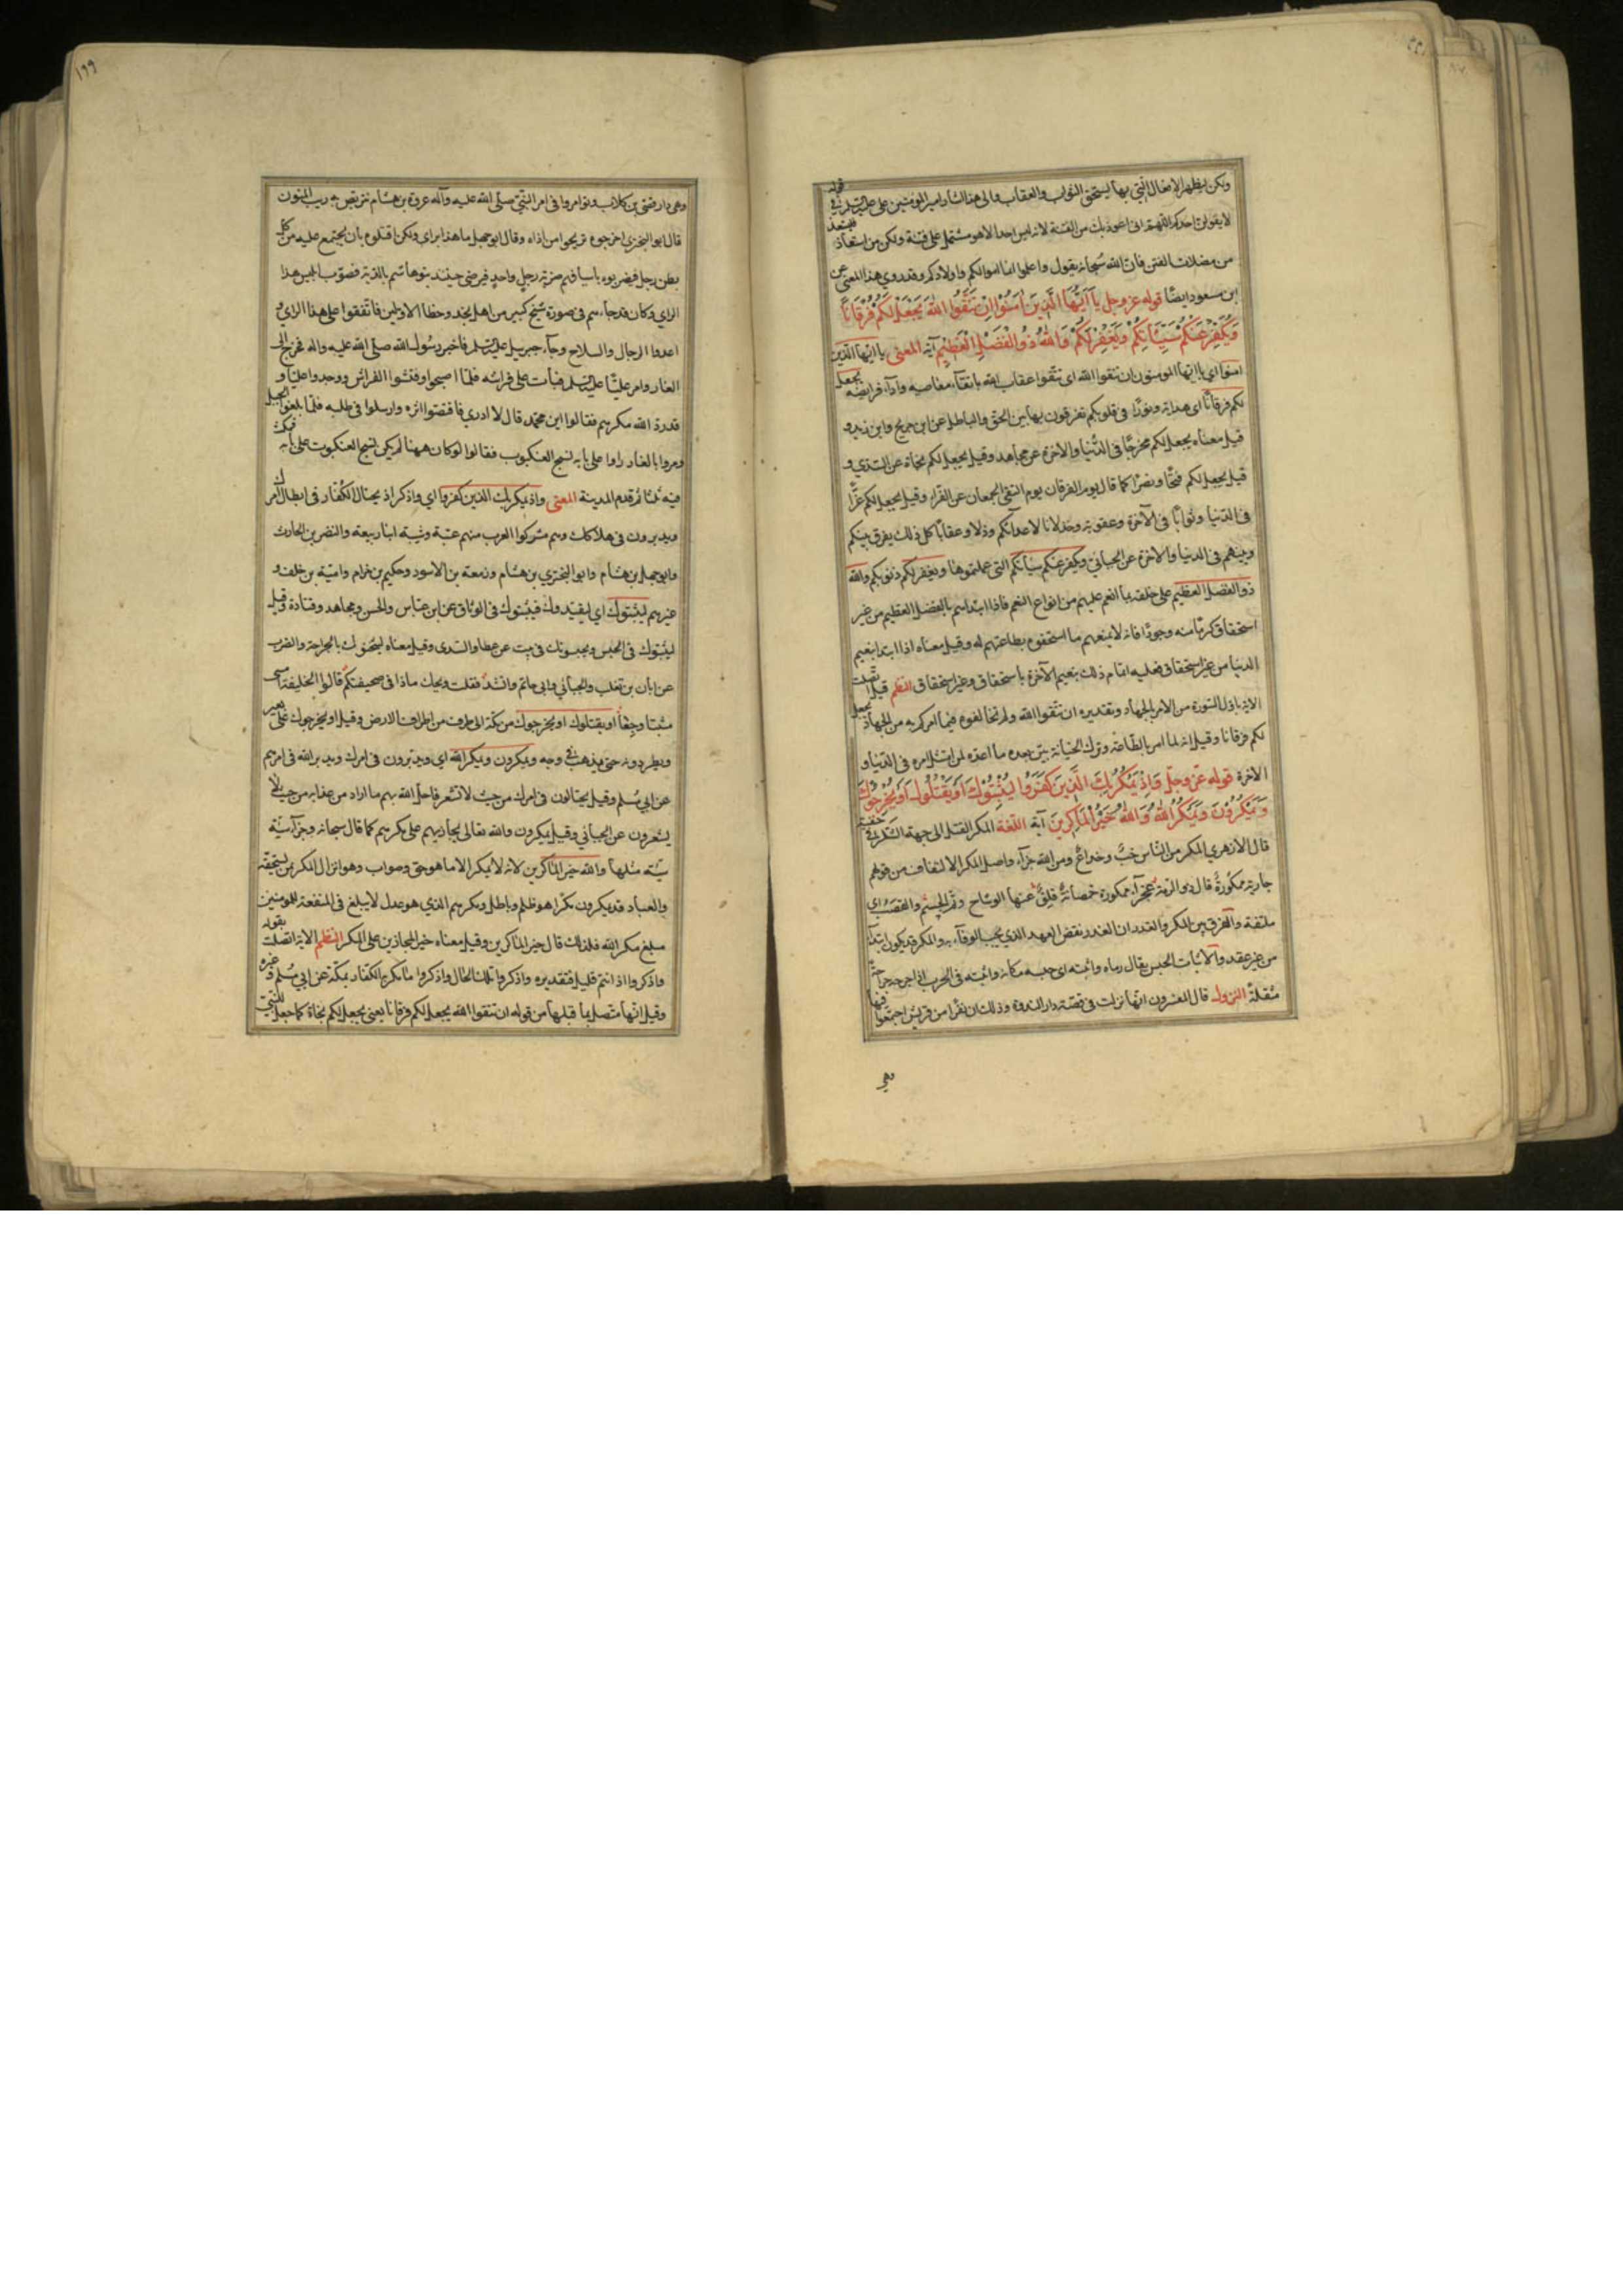 ولكن ليظهر الافعال التي بها يستحق الثواب والعقاب والى هذا اشار امير المؤمنين علي عليه السلام في قوله
لا يقولن احدكم اللهم اني اعوذ بك من الفتنة لانه ليس احد الا هو مشتمل على فتنة ولكن من استعاذ فليستعذ
من مضلات الفتن فان الله سبحانه يقول واعلموا انما اموالكم واولادكم وقد روي هذا المعنى عن
ابن مسعود ايضا قوله عز وجل يا ايها الذين امنوا ان تتقوا الله يجعل لكم فرقانا
ويكفر عنكم سيئاتكم ويغفر لكم والله ذو الفضل العظيم آية المعنى يا ايها الذين
امنوا اي يا ايها المؤمنون ان تتقوا الله اي تتقوا عقاب الله باتقاء معاصيه واداء فرايضه يجعل
لكم فرقانا اي هداية ونورا في قلوبكم تفرقون بها بين الحق والباطل عن ابن جريج وابن زيد و
قيل معناه يجعل لكم مخرجا في الدنيا والاخرة عن مجاهد وقيل يجعل لكم نجاة عن السدي و
قيل يجعل لكم فتحا ونصرا كما قال يوم الفرقان يوم التقى الجمعان عن الفراء وقيل يجعل لكم عزا
في الدنيا وثوابا في الآخرة وعقوبة وخذلانا لاعدائكم وذلا وعقابا كل ذلك يفرق بينكم
وبينهم في الدنيا والاخرة عن الجبائي ويكفر عنكم سيأتكم التي عملتموها ويغفر لكم ذنوبكم والله
ذو الفضل العظيم على خلقه بما انعم عليهم من انواع النعم فاذا ابتداهم بالفضل العظيم من غير
استحقاق كرما منه وجودا فانه لا يمنعهم ما استحقوه بطاعتهم له وقيل معناه اذا ابتدا بنعيم
الدنيا من غير استحقاق فعليه اتمام ذلك بنعيم الآخرة باستحقاق وغير استحقاق النظم قيل اتصلت
الاية باول السورة من الامر بالجهاد وتقديره ان تتقوا الله ولم تخالفوه فيما امركم به من الجهاد يجعل
لكم فرقانا وقيل انه لما امر بالطاعة وترك الخيانة بين بعده ما اعده لمن امتثل امره في الدنيا و
الاخرة قوله عز وجل واذ يمكر بك الذين كفروا ليثبتوك او يقتلوك او يخرجوك
ويمكرون ويمكر الله والله خير الماكرين آية اللغة المكر الفتل الى جهة الشر في خفية
قال الازهري المكر من الناس خب وخداع ومن الله جزاء واصل المكر الالتفاف من قولهم
جارية ممكورة قال ذو الرمة عجزاء ممكورة خمصانة قلق عنها الوشاح وتم الجسم والقصب اي
ملتفة والفرق بين المكر والغدر ان الغدر نقض العهد الذي يجب الوفاء به والمكر قد يكون ابتداء
من غير عقد والاثبات الحبس يقال رماه واثبته اي حبسه مكانه واثبته في الحرب اذا جرحه جراحة
مثقلة النزول قال المفسرون انها نزلت في قصة دار الندوة وذلك ان نفرا من قريش اجتمعوا فيها
وهي
١٩٩
وهي دار قصي بن كلاب وتوامروا في امر النبي صلى الله عليه وآله عروة بن هشام نتربص به ريب المنون
قال ابو البختري اخرجوه تريحوا من اذاه وقال ابو جهل ما هذا براي ولكن اقتلوه بان يجتمع عليه من كل
بطن رجل فيضربوه باسيافهم ضربة رجل واحد فيرضى حينئذ بنو هاشم بالدية فصوب ابليس هذا
الراي وكان قد جاءهم في صورة شيخ كبير من اهل نجد وخطأ الاولين فاتفقوا على هذا الراي و
اعدوا الرجال والسلاح وجاء جبريل عليه السلم فاخبر رسول الله صلى الله عليه واله فخرج الى
الغار وامر عليا عليه السلم فبات على فراشه فلما اصبحوا وفتشوا الفراش ووجدوا عليا و
قدرد الله مكرهم فقالوا اين محمد قال لا ادري فاقتصوا اثره وارسلوا في طلبه فلما بلغوا الجبل
ومروا بالغار راوا على بابه نسج العنكبوت فقالوا لو كان ههنا لم يكن نسج العنكبوت على بابه فمكث
فيه ثلثا ثم قدم المدينة المعنى واذ يمكر بك الذين كفروا اي واذكر اذ يحتال الكفار في ابطال امرك
ويدبرون في هلاكك وهم مشركوا العرب منهم عتبة وشيبة ابنا ربيعة والنضر بن الحارث
وابو جهل بن هشام وابو البختري بن هشام وزمعة بن الاسود وحكيم بن حزام وامية بن خلف و
غيرهم ليثبتوك اي ليقيدوك فيثبتوك في الوثاق عن ابن عباس والحسن ومجاهد وقتادة وقيل
ليثبتوك في الحبس ويحبسونك في بيت عن عطا والسدي وقيل معناه ليثخنوك بالجراحة والضرب
عن ابان بن تغلب والجبائي وابي حاتم وانشد فقلت ويحك ماذا في صحيفتكم قالوا الخليفة امسى
مثبتا وجعا او يقتلوك او يخرجوك من مكة الى طرف من اطراف الارض وقيل او يخرجوك على بعير
ويطردونه حتى يذهب في وجهه ويمكرون ويمكر الله اي ويدبرون في امرك ويدبر الله في امرهم
عن ابي مسلم وقيل يحتالون في امرك من حيث لا تشعر فاحل الله بهم ما اراد من عذابه من حيث لا
يشعرون عن الجبائي وقيل يمكرون والله تعالى يجازيهم على مكرهم كما قال سبحانه وجزآء سيئة
سيئة مثلها والله خير الماكرين لانه لا يمكر الا ما هو حق وصواب وهو انزال المكر بمن يستحقه
والعباد قد يمكرون مكرا هو ظلم وباطل ومكرهم الذي هو عدل لا يبلغ في المنفعة للمؤمنين
مبلغ مكر الله فلذلك قال خير الماكرين وقيل معناه خير المجازين على المكر النظم الاية اتصلت بقوله
واذكروا اذ انتم قليل فتقديره واذكروا تلك الحال واذكروا ما مكر الكفار بمكة عن ابي مسلم وغيره
وقيل انها متصل بما قبلها من قوله ان تتقوا الله يجعل لكم فرقانا يعني يجعل لكم نجاة كما جعل للنبي